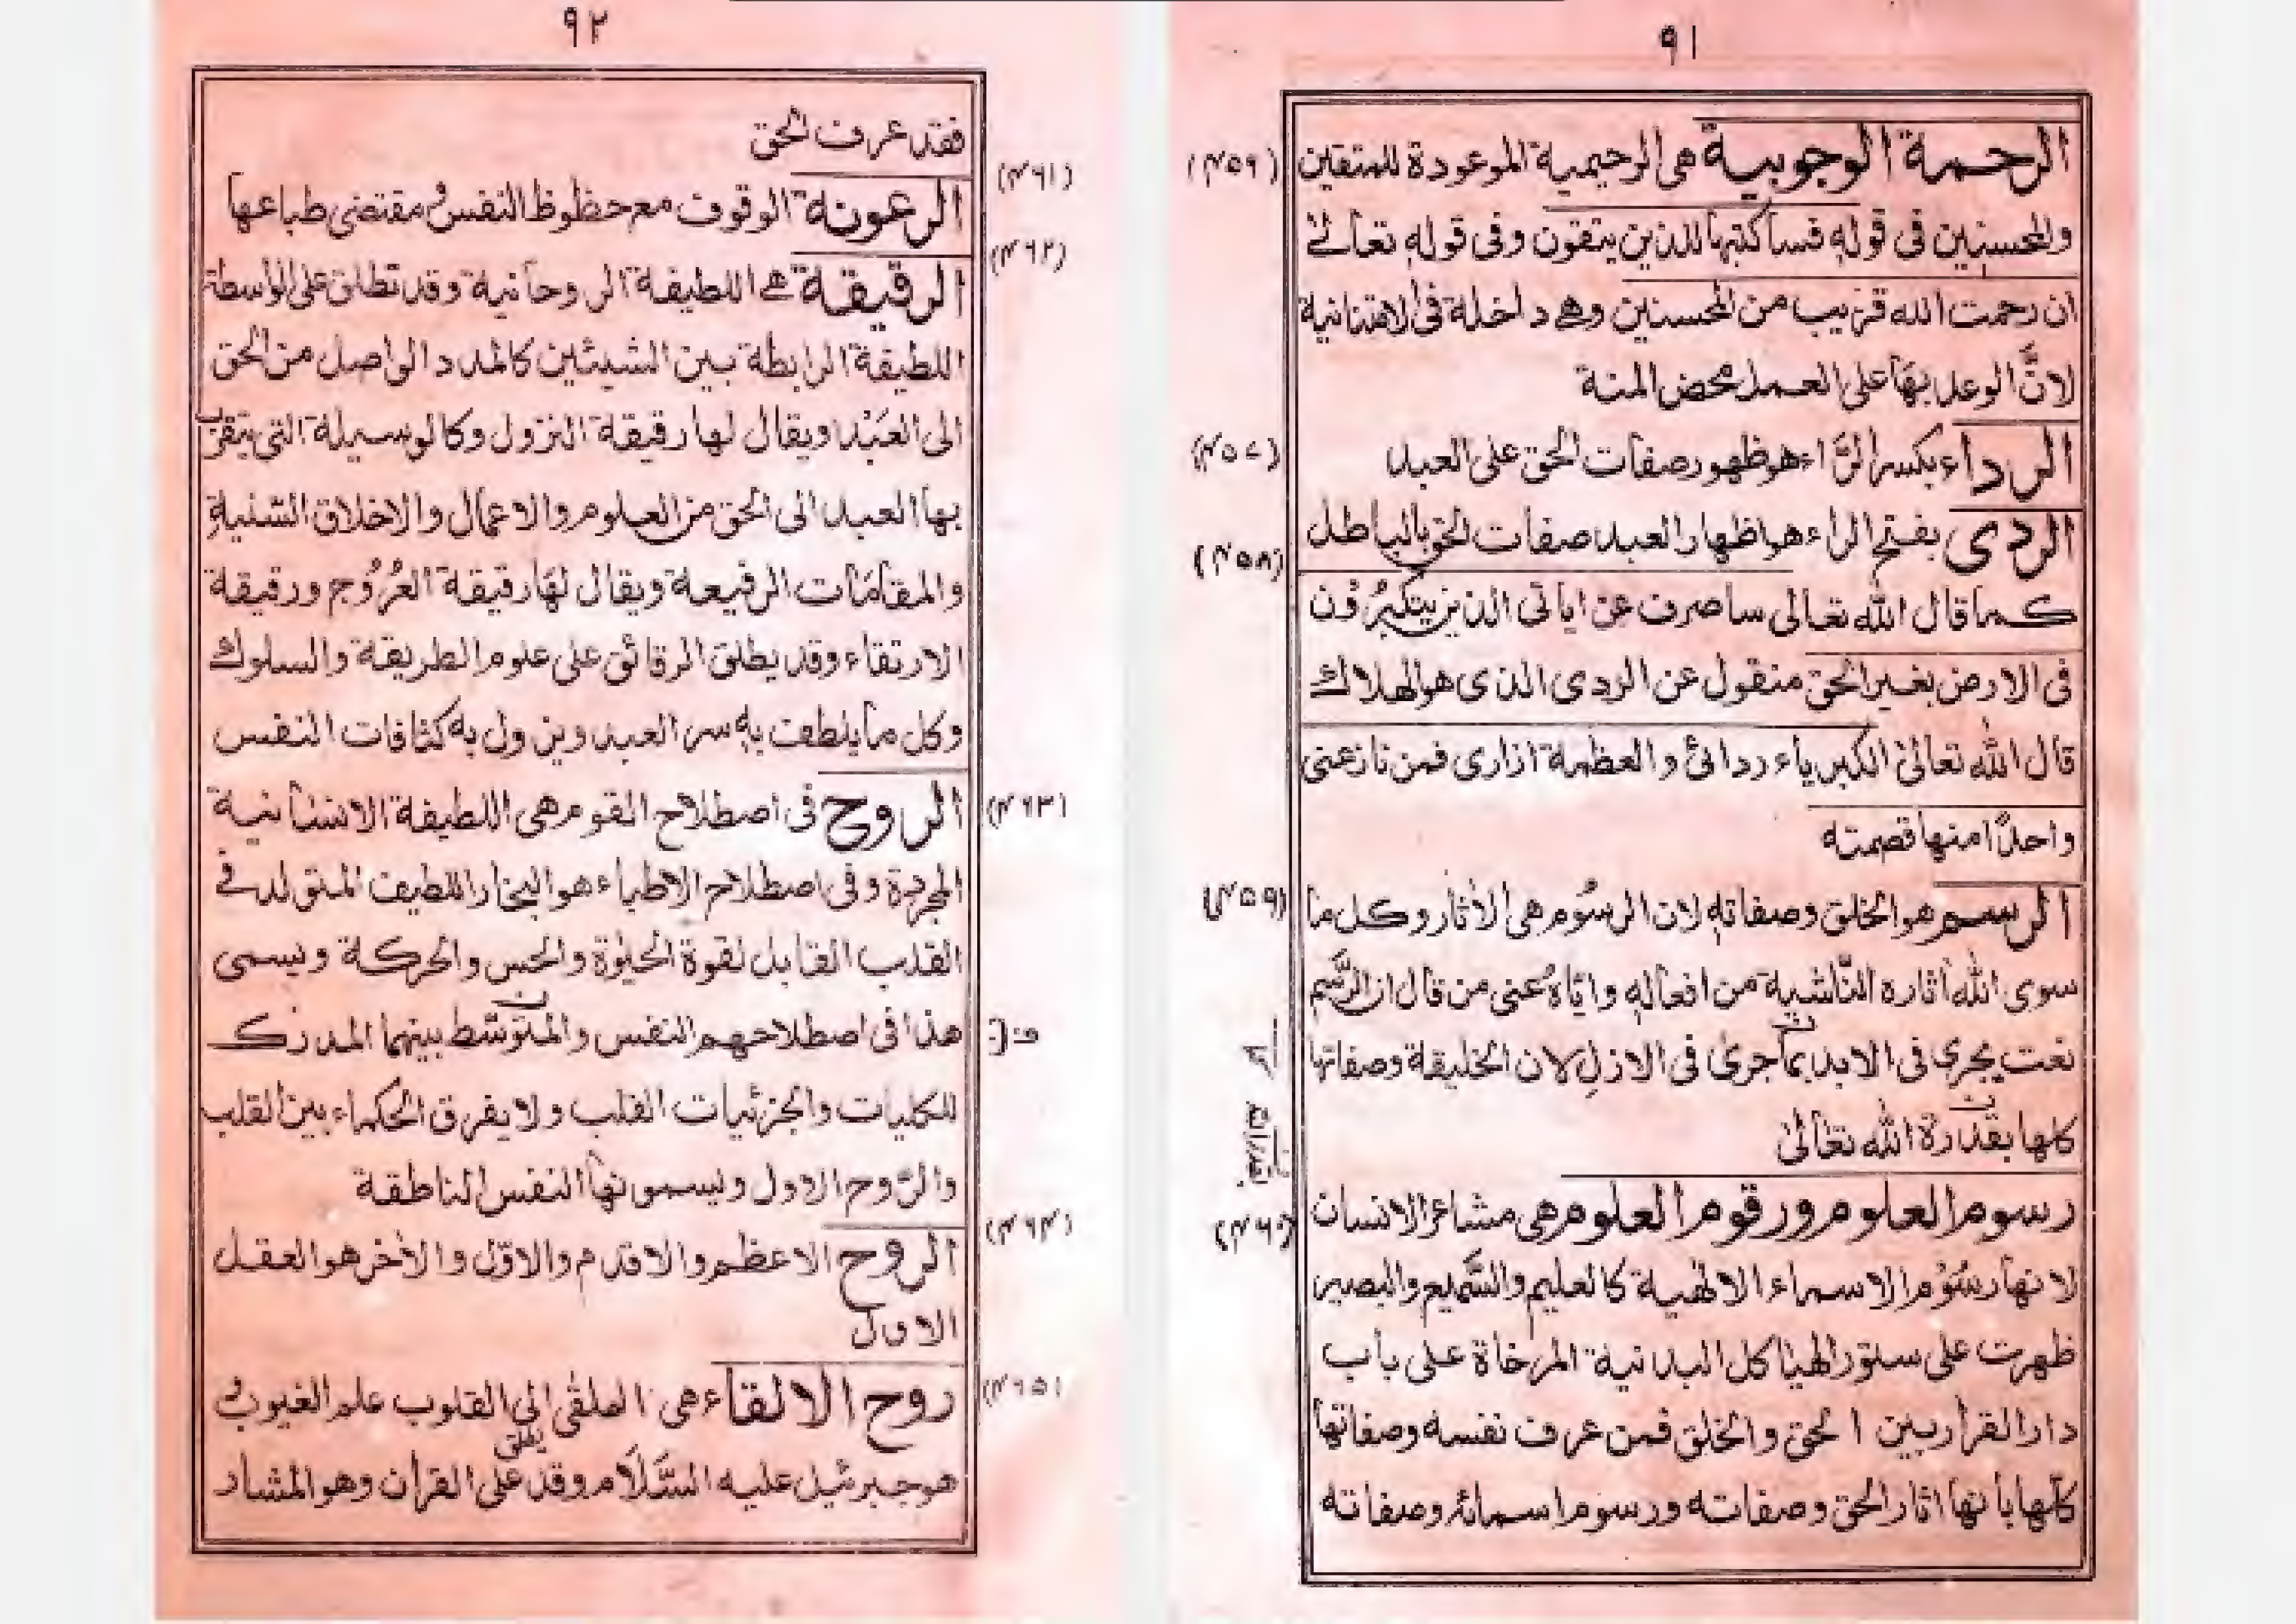 ٩١
الرحمة الوجوبية هى الرحيمية الموعودة للمتقين (٤٥٦)
والمحسنين فى قوله فسأكتبها للذين يتقون وفى قوله تعالىٰ
ان رحمت الله قريب من المحسنين وهے داخلة فى الامتنانية
لانَّ الوعد بها على العمل محض المنة
الرداء بكسر الرَّاء هو ظهور صفات الحق على العبد (٤٥٧)
الردى بفتح الراء هو اظهار العبد صفات الحق بالباطل (٤٥٨)
كما قال الله تعالى ساصرف عن اياتى الذين يتكبرون
فى الارض بغير الحق منقول عن الردى الذى هو الهلاك
قال الله تعالىٰ الكبرياء ردائى والعظمة ازارى فمن نازعنى
واحدًا منها قصمته
الرسم هو الخلق وصفاته لان الرسُوم هى الأثار وكل ما (٤٥٩)
سوى الله أثاره النّاشية من افعاله واياهُ عنى من قال ان الرَّسم
نعت يجرى فى الابد بما جرىٰ فى الازل لان الخليقة وصفاتها
كلها بقدرة الله تعالىٰ
رسوم العلوم ورقوم العلوم هى مشاعر الانسان (٤٦٠)
لانها رسُوْم الاسماء الالٰهية كالعليم والسَّميع والبصير
ظهرت على ستور الهياكل البدنية المرخاة على باب
دار القرار بين الحق والخلق فمن عرف نفسه وصفاتها
كلّها بأنها اثار الحق وصفاته ورسوم اسمائه وصفاته
٩٢
فقد عرف الحق
الرعونة الوقوف مع حظوظ النفس و مقتضى طباعها (٤٦١)
الرقيقة هے اللطيفة الروحانية وقد تطلق على الواسطة (٤٦٢)
اللطيفة الرابطة بين الشيئين كالمدد الواصل من الحق
الى العَبْد ويقال لها رقيقة النزول وكالوسيلة التى يتقرب
بها العبد الى الحق من العلوم والاعمال والاخلاق السنية
والمقامَات الرفيعة ويقال لهَا رقيقة العُرُوج ورقيقة
الارتقاء وقد يطلق الرقائق على علوم الطريقة والسلوك
وكل ما يلطف به سر العبد ويزول به كثافات النفس
الروح فى اصطلاح القوم هى اللطيفة الانسانية (٤٦٣)
المجردة وفى اصطلاح الاطباء هو البخار اللطيف المتولد فے
القلب القابل لقوة الحيٰوة والحس والحركة ويسمى
هذا فى اصطلاحهم النفس والمتوسّط بينهما المدرك
للكليات والجزئيات القلب ولا يفرق الحكماء بين القلب
والرّوح الاول ويسمونها النفس الناطقة
الروح الاعظم والاقدم والاوّل والأخر هو العقل (٤٦٤)
الاول
روح الالقاء هى الملقى الى القلوب علم الغيوب و (٤٦٥)
هو جبرئيل عليه السَّلَام وقد يطلق على القرأن وهو المشار